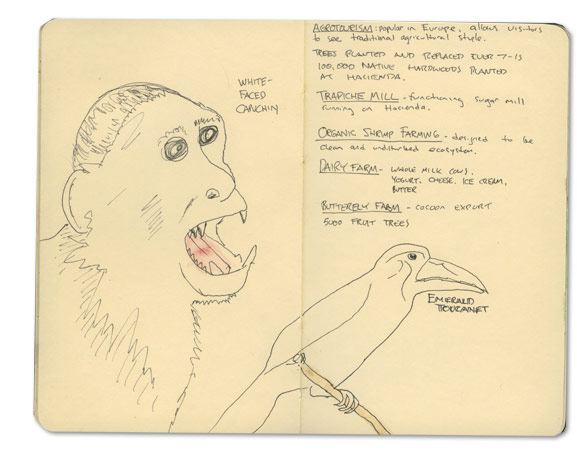 WHITE-
FACED
CAPUCHIN
AGROTOURISM: popular in Europe, allows visitors
to see traditional agricultural style.
TREES PLANTED AND REPLACED EVERY 7-15
100,000 NATIVE HARDWOODS PLANTED
AT HACIENDA.
TRAPICHE MILL - functioning sugar mill
running on Hacienda.
ORGANIC SHRIMP FARMING - designed to be
clean and undisturbed ecosystem.
DAIRY FARM - WHOLE MILK COWS.
YOGURT, CHEESE, ICE CREAM,
BUTTER
BUTTERFLY FARM - COCOON EXPORT
5000 FRUIT TREES
EMERALD
TOUCANET